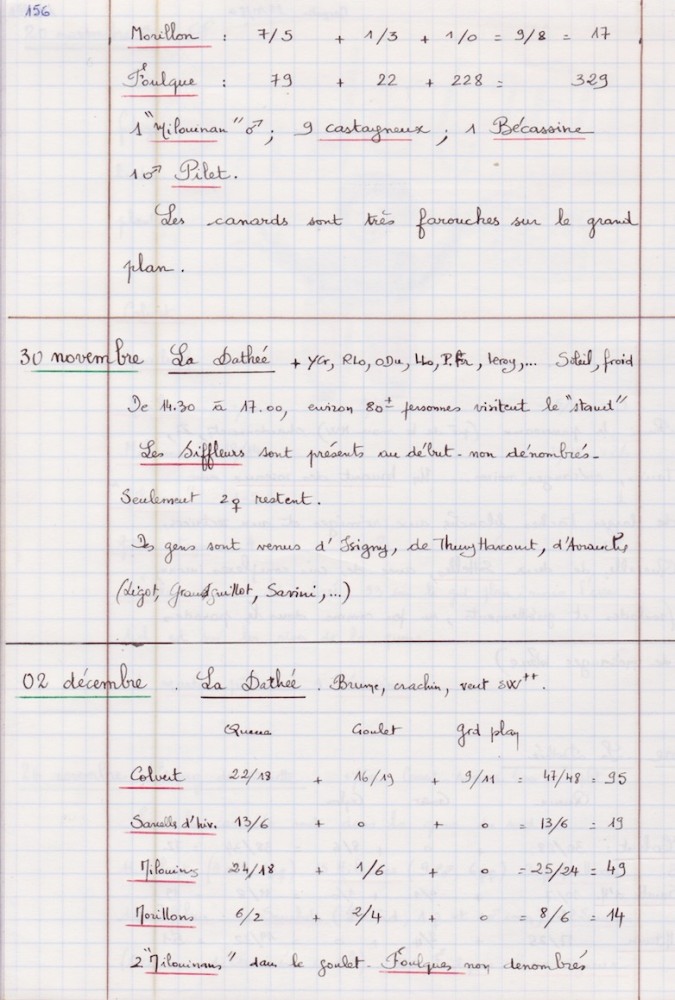 156
Morillon : 7/5 + 1/3 + 1/0 = 9/8 = 17
Foulque : 79 + 22 + 228 = 329
1 "Milouinan" ♂ ; 9 castagneux ; 1 Bécassine
1 ♂ Pilet.
Les canards sont très farouches sur le grand
plan.
30 novembre La Dathée + YGr, RLo, ODu, LLo, P.Fr, Leroy,... Soleil, froid
De 14.30 à 17.00, environ 80± personnes visitent le "stand"
Les Siffleurs sont présents au début - non dénombrés -
Seulement 2♀ restent.
Des gens sont venus d'Isigny, de Thury Harcourt, d'Avranches
(Ligot, Grandguillot, Savini,...)
02 décembre . La Dathée . Brume, crachin, vent SW++.
Queue Goulet grd plan
Colvert 22/18 + 16/19 + 9/11 = 47/48 = 95
Sarcelle d'hiv. 13/6 + 0 + 0 = 13/6 = 19
Milouins 24/18 + 1/6 + 0 = 25/24 = 49
Morillons 6/2 + 2/4 + 0 = 8/6 = 14
2 "Milouinans" dans le goulet - Foulques non denombrés